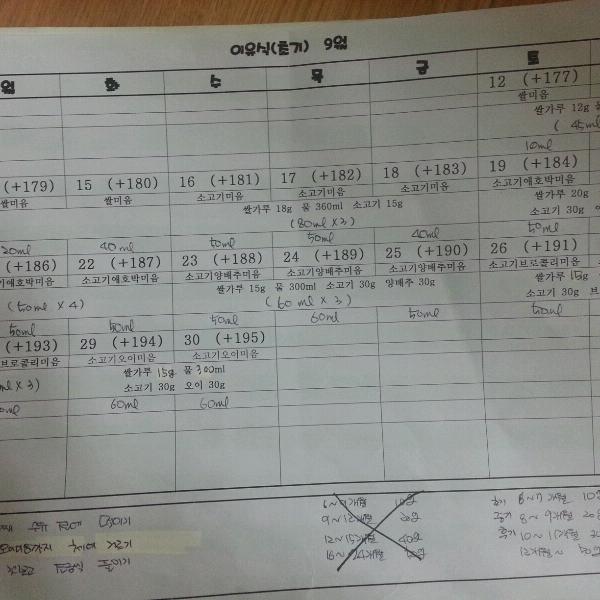 이유식(초기) 9월
월 화 수 목 금 토
12 (+177)
쌀미음
쌀가루 12g
(45ml
10ml
(+179) 15 (+180) 16 (+181) 17 (+182) 18 (+183) 19 (+184)
쌀미음 쌀미음 소고기미음 소고기미음 소고기미음 소고기애호박미음
쌀가루 18g 물 360ml 소고기 15g 쌀가루 20g
(80ml x 3) 소고기 30g
20ml 40ml 50ml 50ml 40ml 50ml
(+186) 22 (+187) 23 (+188) 24 (+189) 25 (+190) 26 (+191)
기애호박미음 소고기애호박미음 소고기양배추미음 소고기양배추미음 소고기양배추미음 소고기브로콜리미음
쌀가루 15g 물 300ml 소고기 30g 양배추 30g 쌀가루 15g
(50ml x 4) (60ml x 3) 소고기 30g
50ml 50ml 50ml 60ml 50ml 50ml
(+193) 29 (+194) 30 (+195)
브로콜리미음 소고기오이미음 소고기오이미음
쌀가루 15g 물 300ml
ml x 3) 소고기 30g 오이 30g
60ml 60ml
6~9개월 10일
9~12개월 20일
12~15개월 40일
16~24개월
초기 6~7개월 10
중기 8~9개월 20
후기 10~11개월
12개월~